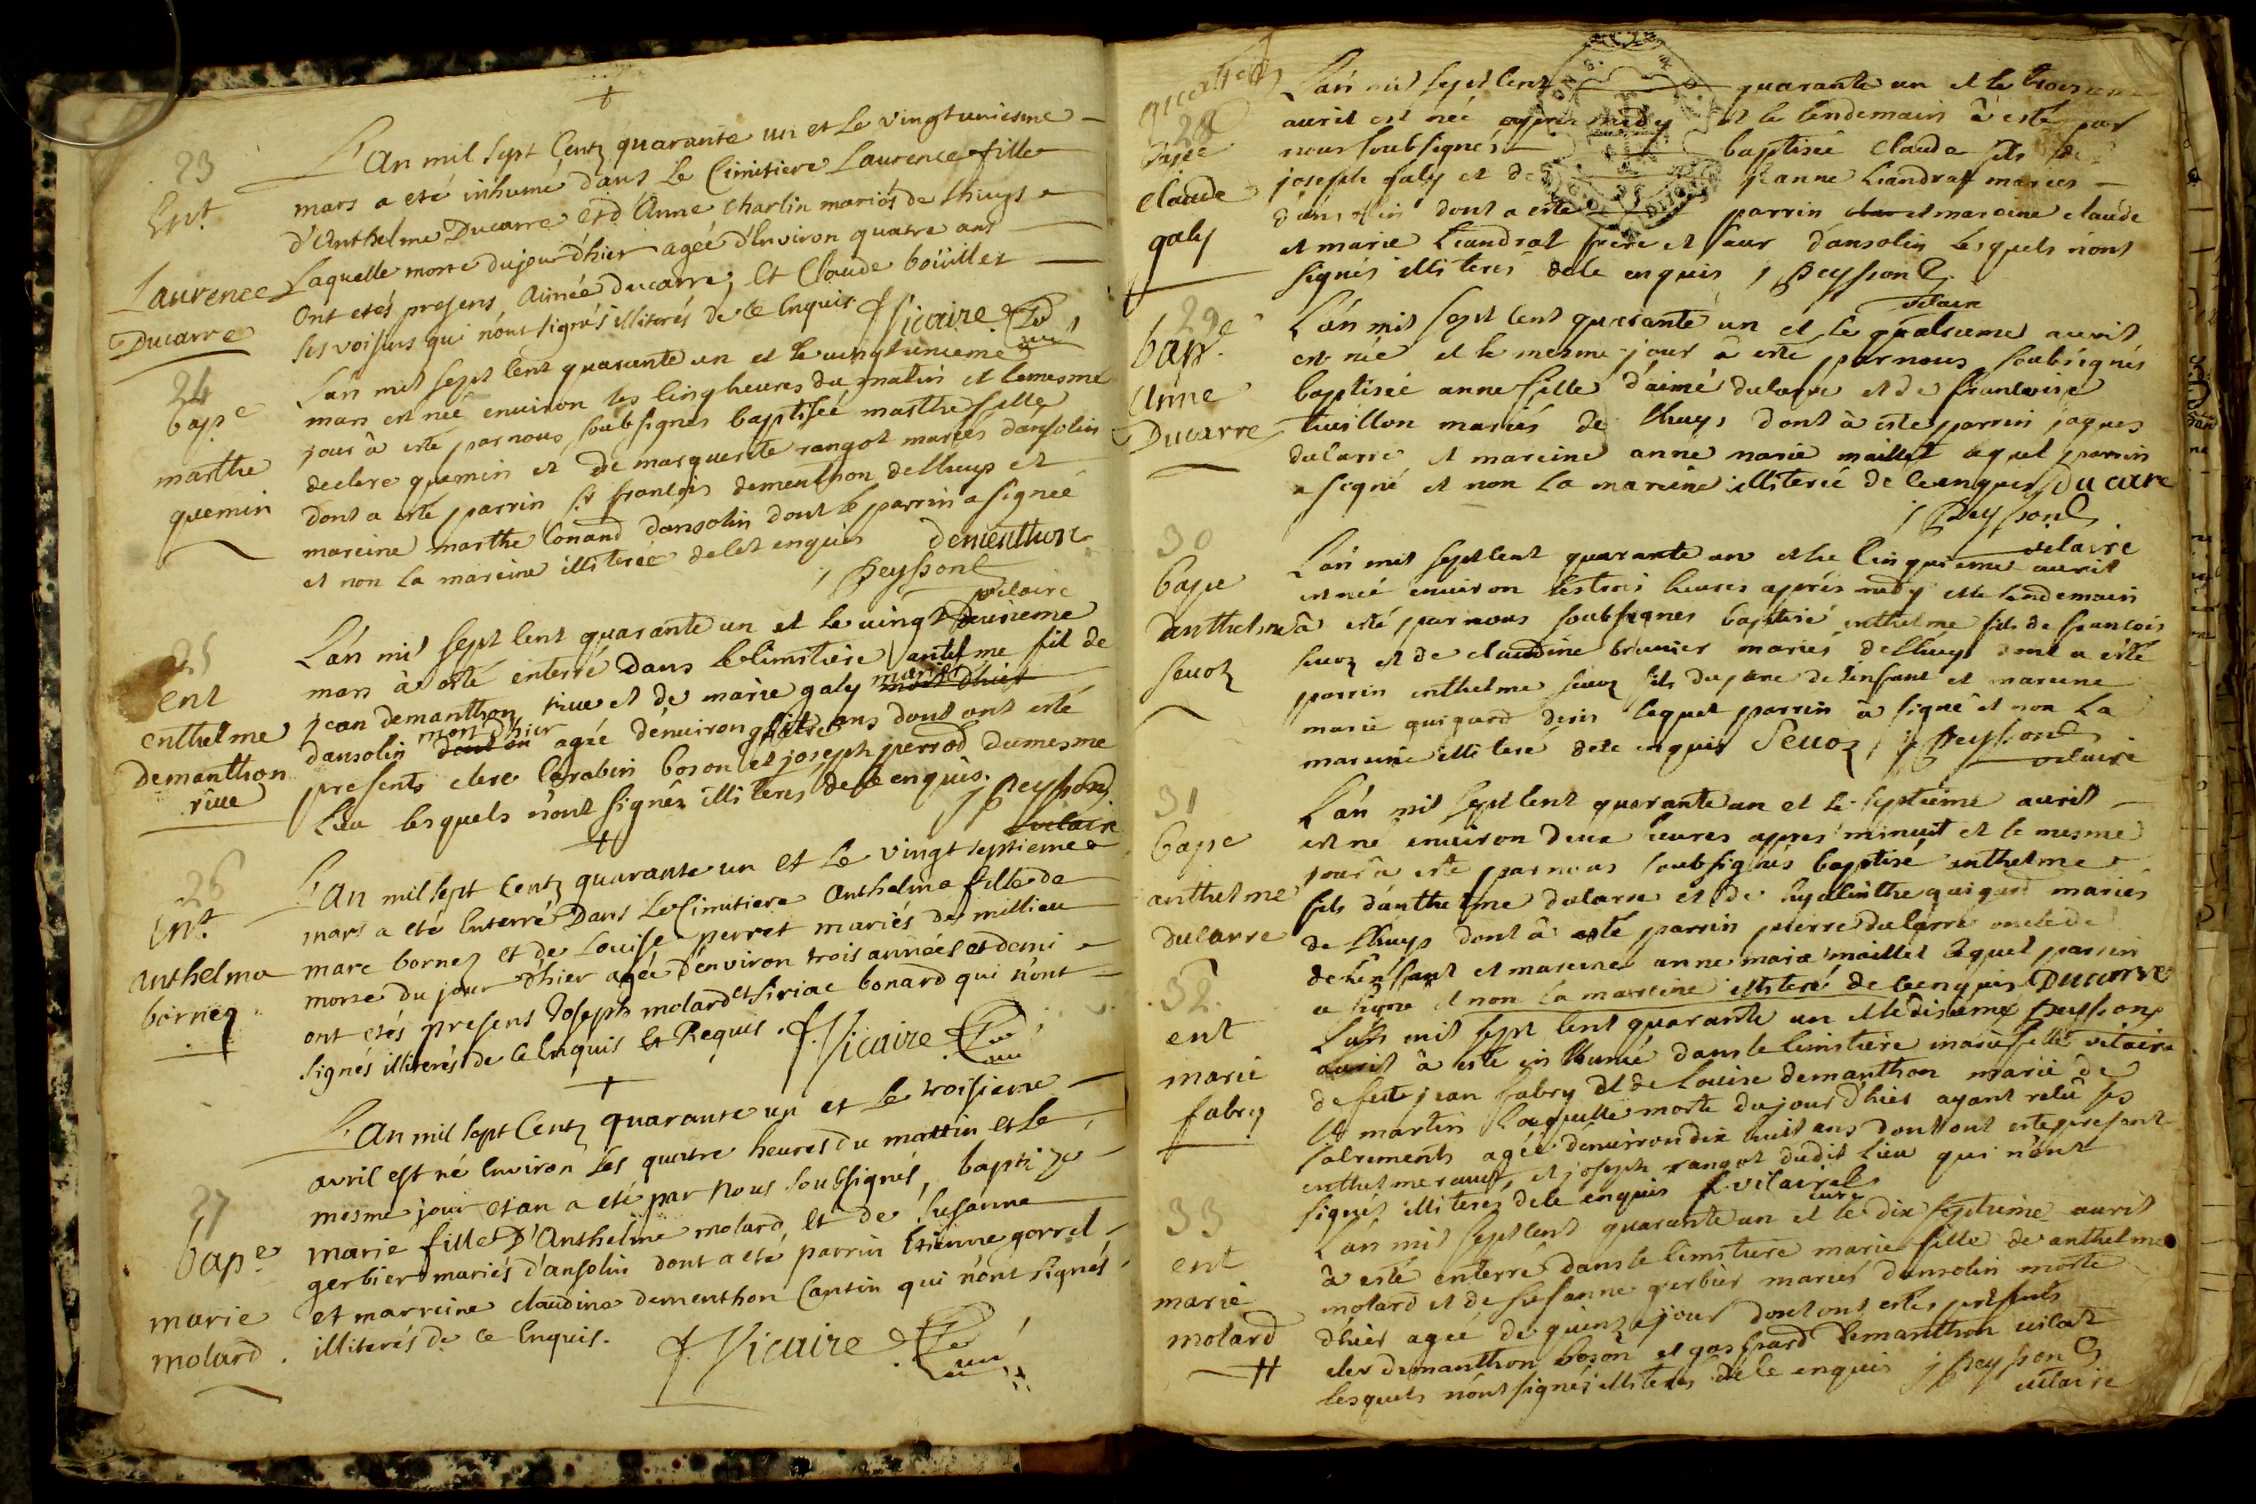 23
Ent.
Laurence
Ducarre
L'an mil sept Centz quarante un et Le vingtuniesme
mars a eté inhumé dans Le Cimitiere Laurence fille
d'Anthelme Ducarre et d'Anne Charlin mariés de Lhuys
Laquelle morte dujour d'hier agée d'Environ quatre ans
Ont etés presens Aimée ducarre, et Claude boüillet
ses voisins qui n'ont signés illiterés de ce Enquis. Vicaire
24
bap.e
marthe
quemin
L'an mil sept cent quarante un et le vingtunieme
mars est née environ les cinq heures du matin et le mesme
jour à esté par nous soubsignes baptiseé marthe fille
declere quemin et de marguerite rangot mariés dansolin
dont a esté parrin sr francois dementhon de Lhuys et
mareine marthe Conand dansolin dont le parrin a signeé
et non la mareine illitereé de cet enquis dementhon
j Peysson
vicaire
25
ent
enthelme
demanthon
rive
L'an mil sept cent quarante un et le vingt deusieme
mars à esté enterré dans le cimitiere antelme fil de
jean demanthon rive et de marie galy mariés mort d'hier
dansolin mort d'hier agée denviron quatre ans dont ont esté
presents clere Carabin boson et joseph perrod dumesme
Lieu lesquels n'ont signéz illiterés de ce enquis. j Peysson
vicaire
26
Ent.
Anthelma
borneq
L'An mil sept Centz quarante un et Le vingt septieme
mars a eté Enterré Dans Le Cimitiere Anthelma fille de
marc bornez et de Louise perret mariés de millieu
morte du jour d'hier agée d'environ trois années et demi
ont etés presens Joseph molard et Siriac bonard qui n'ont
signés illiterés de ce Enquis Et Requis. Vicaire
27
bap.e
marie
molard.
L'An mil sept Centz quarante un et Le troisieme
avril est né Environ Les quatre heures du mattin et Le
mesme jour et an a eté par Nous soubsignés, baptizé
marie fille D'Anthelme molard et de Susanne
gerbier mariés d'ansolin dont a eté parrin Etienne gorrel
et marreine claudine dementhon Cantin qui n'ont signés
illiterés de ce Enquis. Vicaire
28
bape
claude
galy
L'an mil sept cent quarante un et le troisieme
avril est née apres midy et le lendemain à esté par
nous soubsignés baptisée claude fils de
joseph galy et de jeanne Liandrat mariés
dansolin dont a esté parrin et mareine claude
et marie Liandrat frere et seur dansolin lesquels n'ont
signés illiteres de ce enquis j Peysson
vicaire
29
bap.e
Anne
Ducarre
L'an mil sept cent quarante un et le quatrieme avril
est née et le mesme jour à esté par nous soubsignés
baptiseé anne fille d'aimé ducarre et de francoise
tuillon mariés de Lhuys dont à esté parrin jaques
ducarre et mareine anne marie maillet lequel parrin
a signé et non la mareine illitereé de ce enquis Ducarre
j Peysson
vicaire
30
bape
danthelme
seuoz
L'an mil sept cent quarante un et le cinquieme avril
est né environ les trois heures aprés midy et le lendemain
à esté par nous soubsignes baptisé enthelme fils de francois
seuoz et de claudine brunier mariés de Lhuys dont a esté
parrin enthelme seuoz fils du pere de lenfant et mareine
marie quigard lequel parrin à signé et non la
mareine illiteré de ce enquis Seuoz j Peysson
vicaire
31
bape
anthelme
ducarre
L'an mil sept cent quarante un et le septieme avril
est né environ deux heures appres minuit et le mesme
jour à esté par nous soubsignés baptisé enthelme
fils danthelme ducarre et de hyacinthe quigard mariés
de Lhuys dont à esté parrin pierre ducarre oncle de
de Lenfant et mareine anne marie maillet lequel parrin
a signé et non la mareine illiteré de ce enquis Ducarre
Peysson
vicaire
32.
ent
marie
fabry
L'an mil sept cent quarante un et le disieme
avril à esté inhumé dans le cimitiere marie fille
de feu jean fabry et de Louise demanthon marié de
st martin Laquelle morte du jour d'hier ayant reçu ses
sacrements agée denviron dix huit ans dont ont esté present
enthelme et joseph rangot dudit Lieu qui n'ont
signés illiterés de ce enquis vicaire
33
ent
marie
molard
L'an mil sept cent quarante un et le dix septieme avril
à esté enterré dans le cimitiere marie fille de anthelme
molard et de susanne gerbier mariés dansolin morte
d'hier ageé de quinze jour dont ont estés presents
cler demanthon boson et gaspard demanthon
lesquels n'ont signés illiterés de ce enquis j Peysson
vicaire